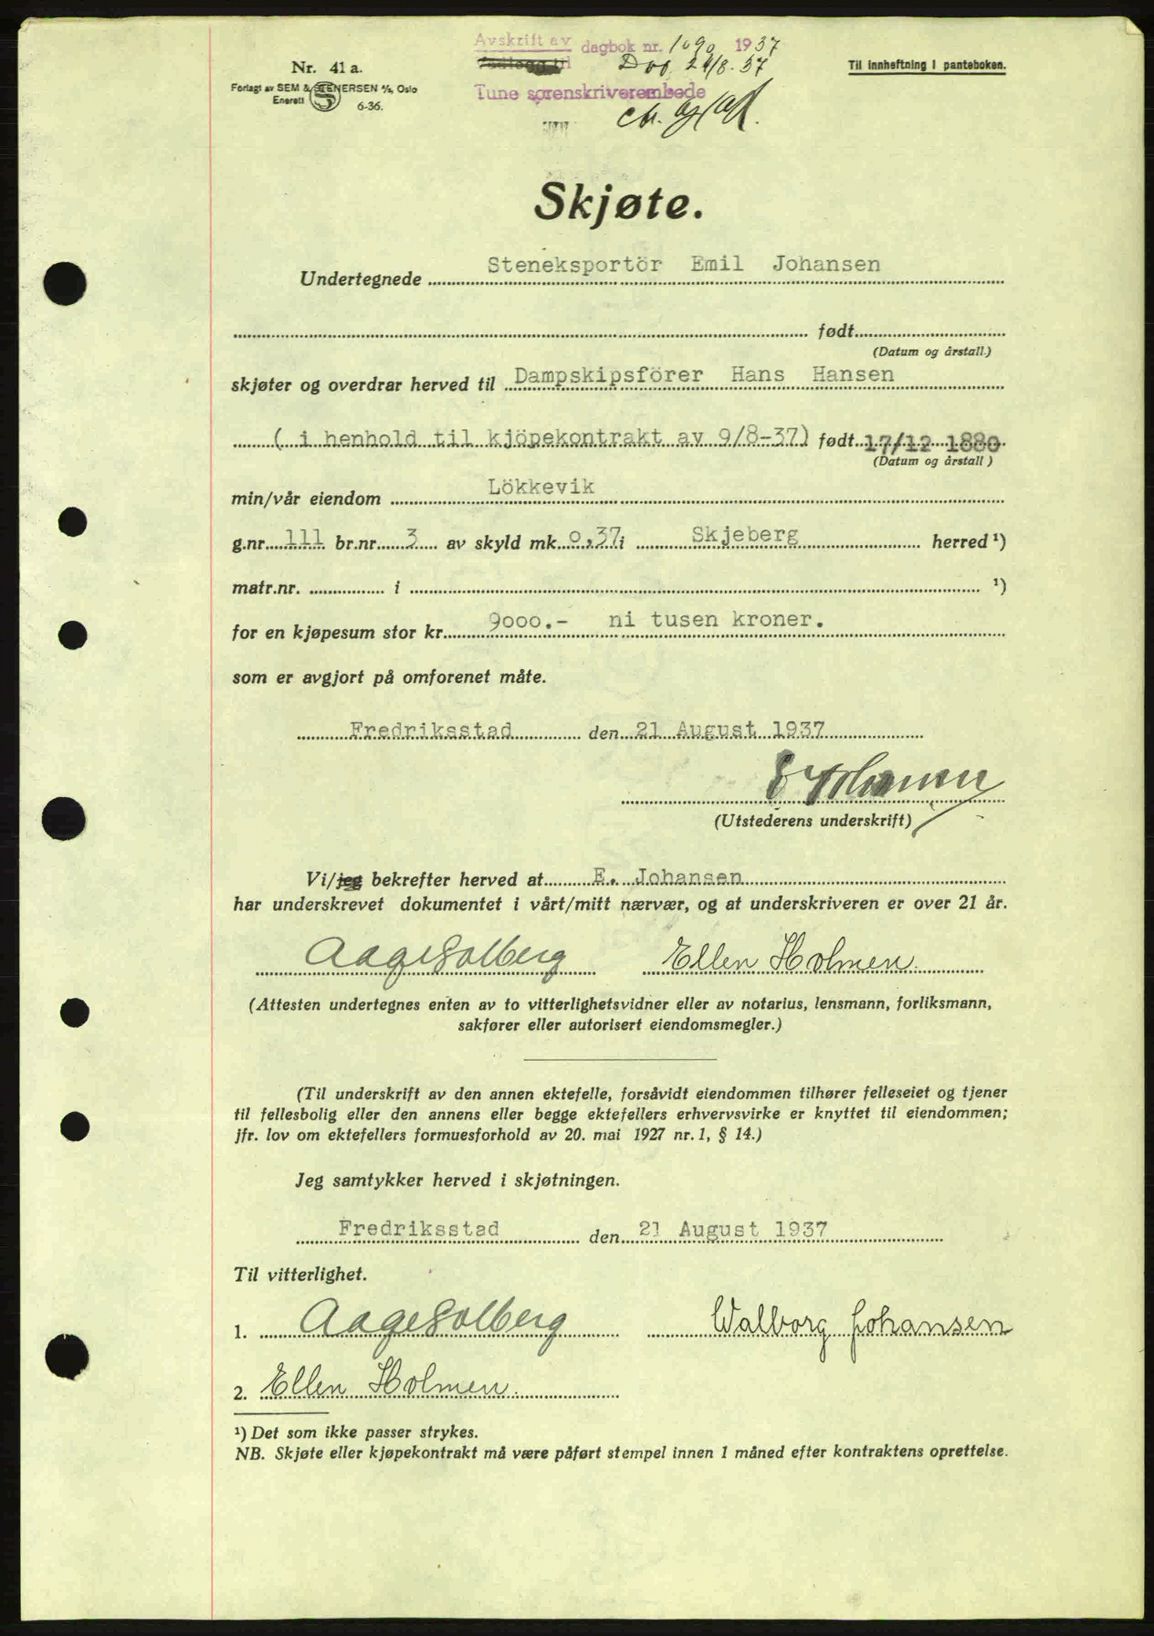 Avskrift av dagbok nr. 1090 1937
Tune sorenskriverembede
Nr. 41 a.
Forlagt av SEM & STENERSEN A/S, Oslo
Enerett 6-36.
Til innheftning i panteboken.
Skjøte.
Undertegnede Steneksportör Emil Johansen
født
(Datum og årstall.)
skjøter og overdrar herved til Dampskipsförer Hans Hansen
( i henhold til kjöpekontrakt av 9/8-37) født 17/12 1880
(Datum og årstall )
min/vår eiendom Lökkevik
g.nr. 111 br.nr. 3 av skyld mk. 0,37 i Skjeberg herred ¹)
matr.nr. i ¹)
for en kjøpesum stor kr. 9000.- ni tusen kroner.
som er avgjort på omforenet måte.
Fredriksstad den 21 August 1937
E Johansen
(Utstederens underskrift)
Vi/jeg bekrefter herved at E. Johansen
har underskrevet dokumentet i vårt/mitt nærvær, og at underskriveren er over 21 år.
Aage Solberg Ellen Holmen.
(Attesten undertegnes enten av to vitterlighetsvidner eller av notarius, lensmann, forliksmann,
sakfører eller autorisert eiendomsmegler.)
(Til underskrift av den annen ektefelle, forsåvidt eiendommen tilhører felleseiet og tjener
til fellesbolig eller den annens eller begge ektefellers erhvervsvirke er knyttet til eiendommen;
jfr. lov om ektefellers formuesforhold av 20. mai 1927 nr. 1, § 14.)
Jeg samtykker herved i skjøtningen.
Fredriksstad den 21 August 1937
Til vitterlighet.
1. Aage Solberg Walborg Johansen
2. Ellen Holmen.
¹) Det som ikke passer strykes.
NB. Skjøte eller kjøpekontrakt må være påført stempel innen 1 måned efter kontraktens oprettelse.